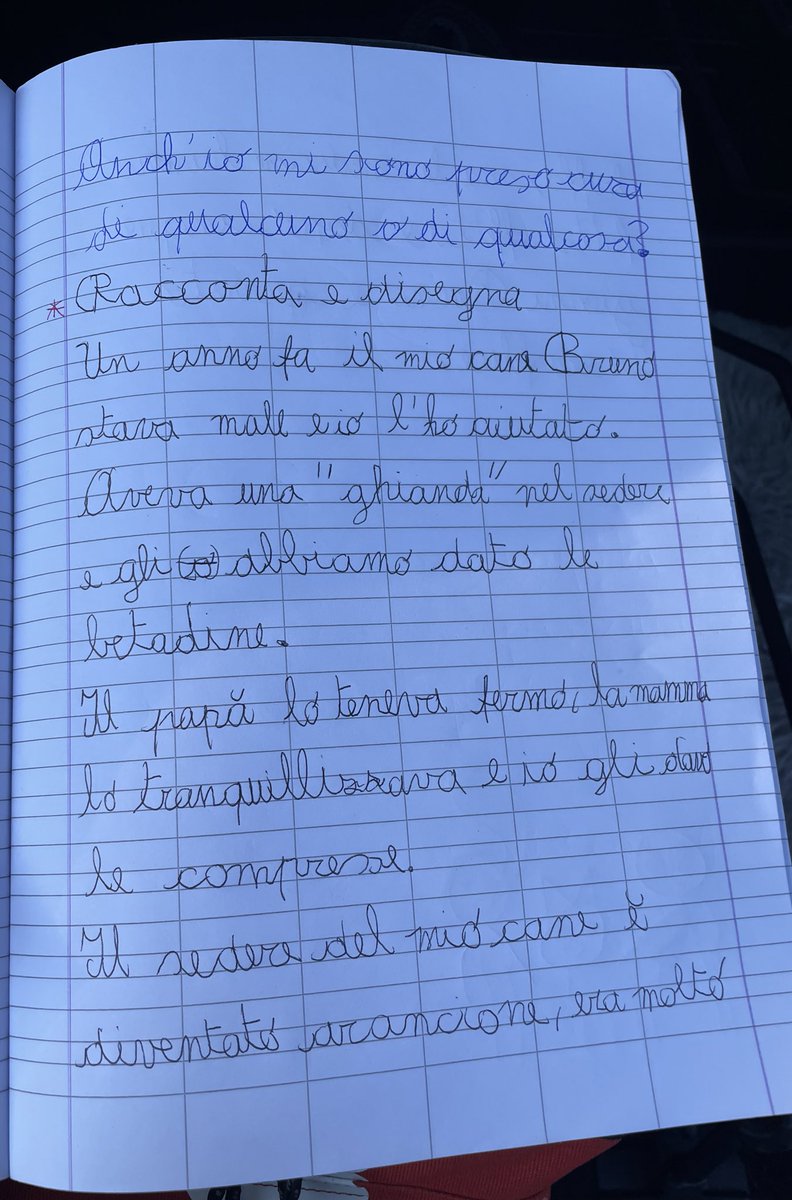 Anch'io mi sono preso cura
di qualcuno o di qualcosa?
* Racconta e disegna
Un anno fa il mio cane Bruno
stava male e io l'ho aiutato.
Aveva una "ghianda" nel sedere
e gli abbiamo dato le
betadine.
Il papà lo teneva fermo, la mamma
lo tranquillizzava e io gli davo
le compresse.
Il sedere del mio cane è
diventato arancione, era molto